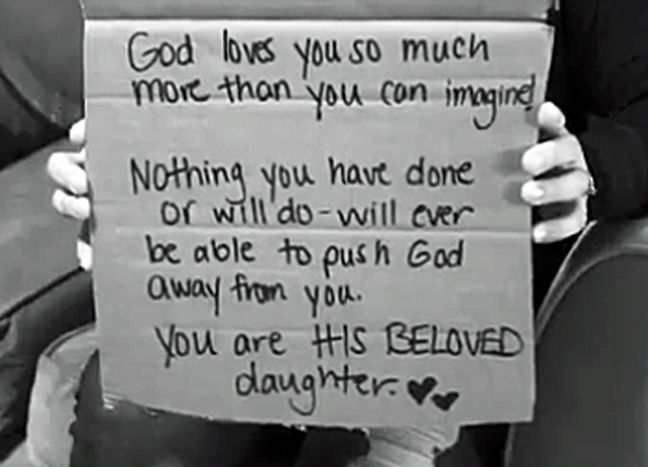 God loves you so much
more than you can imagine!
Nothing you have done
or will do - will ever
be able to push God
away from you.
You are HIS BELOVED
daughter.